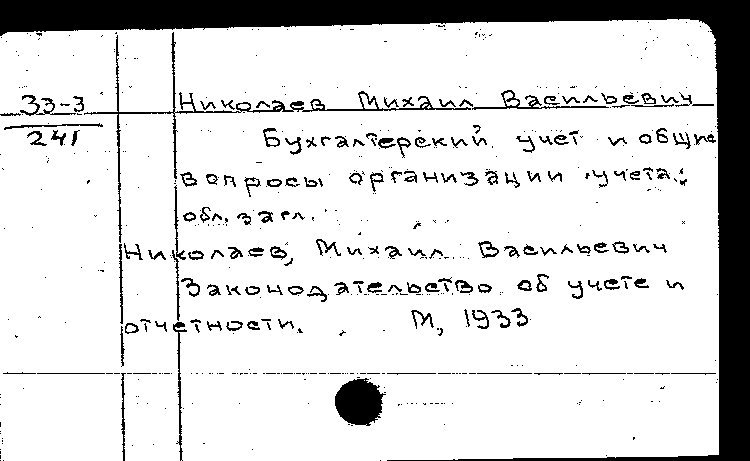 33-3
241
Николаев Михаил Васильевич
Бухгалтерский учет и общие
вопросы организации учета:
обл. загл.
Николаев, Михаил Васильевич
Законодательство об учете и
отчетности. М, 1933